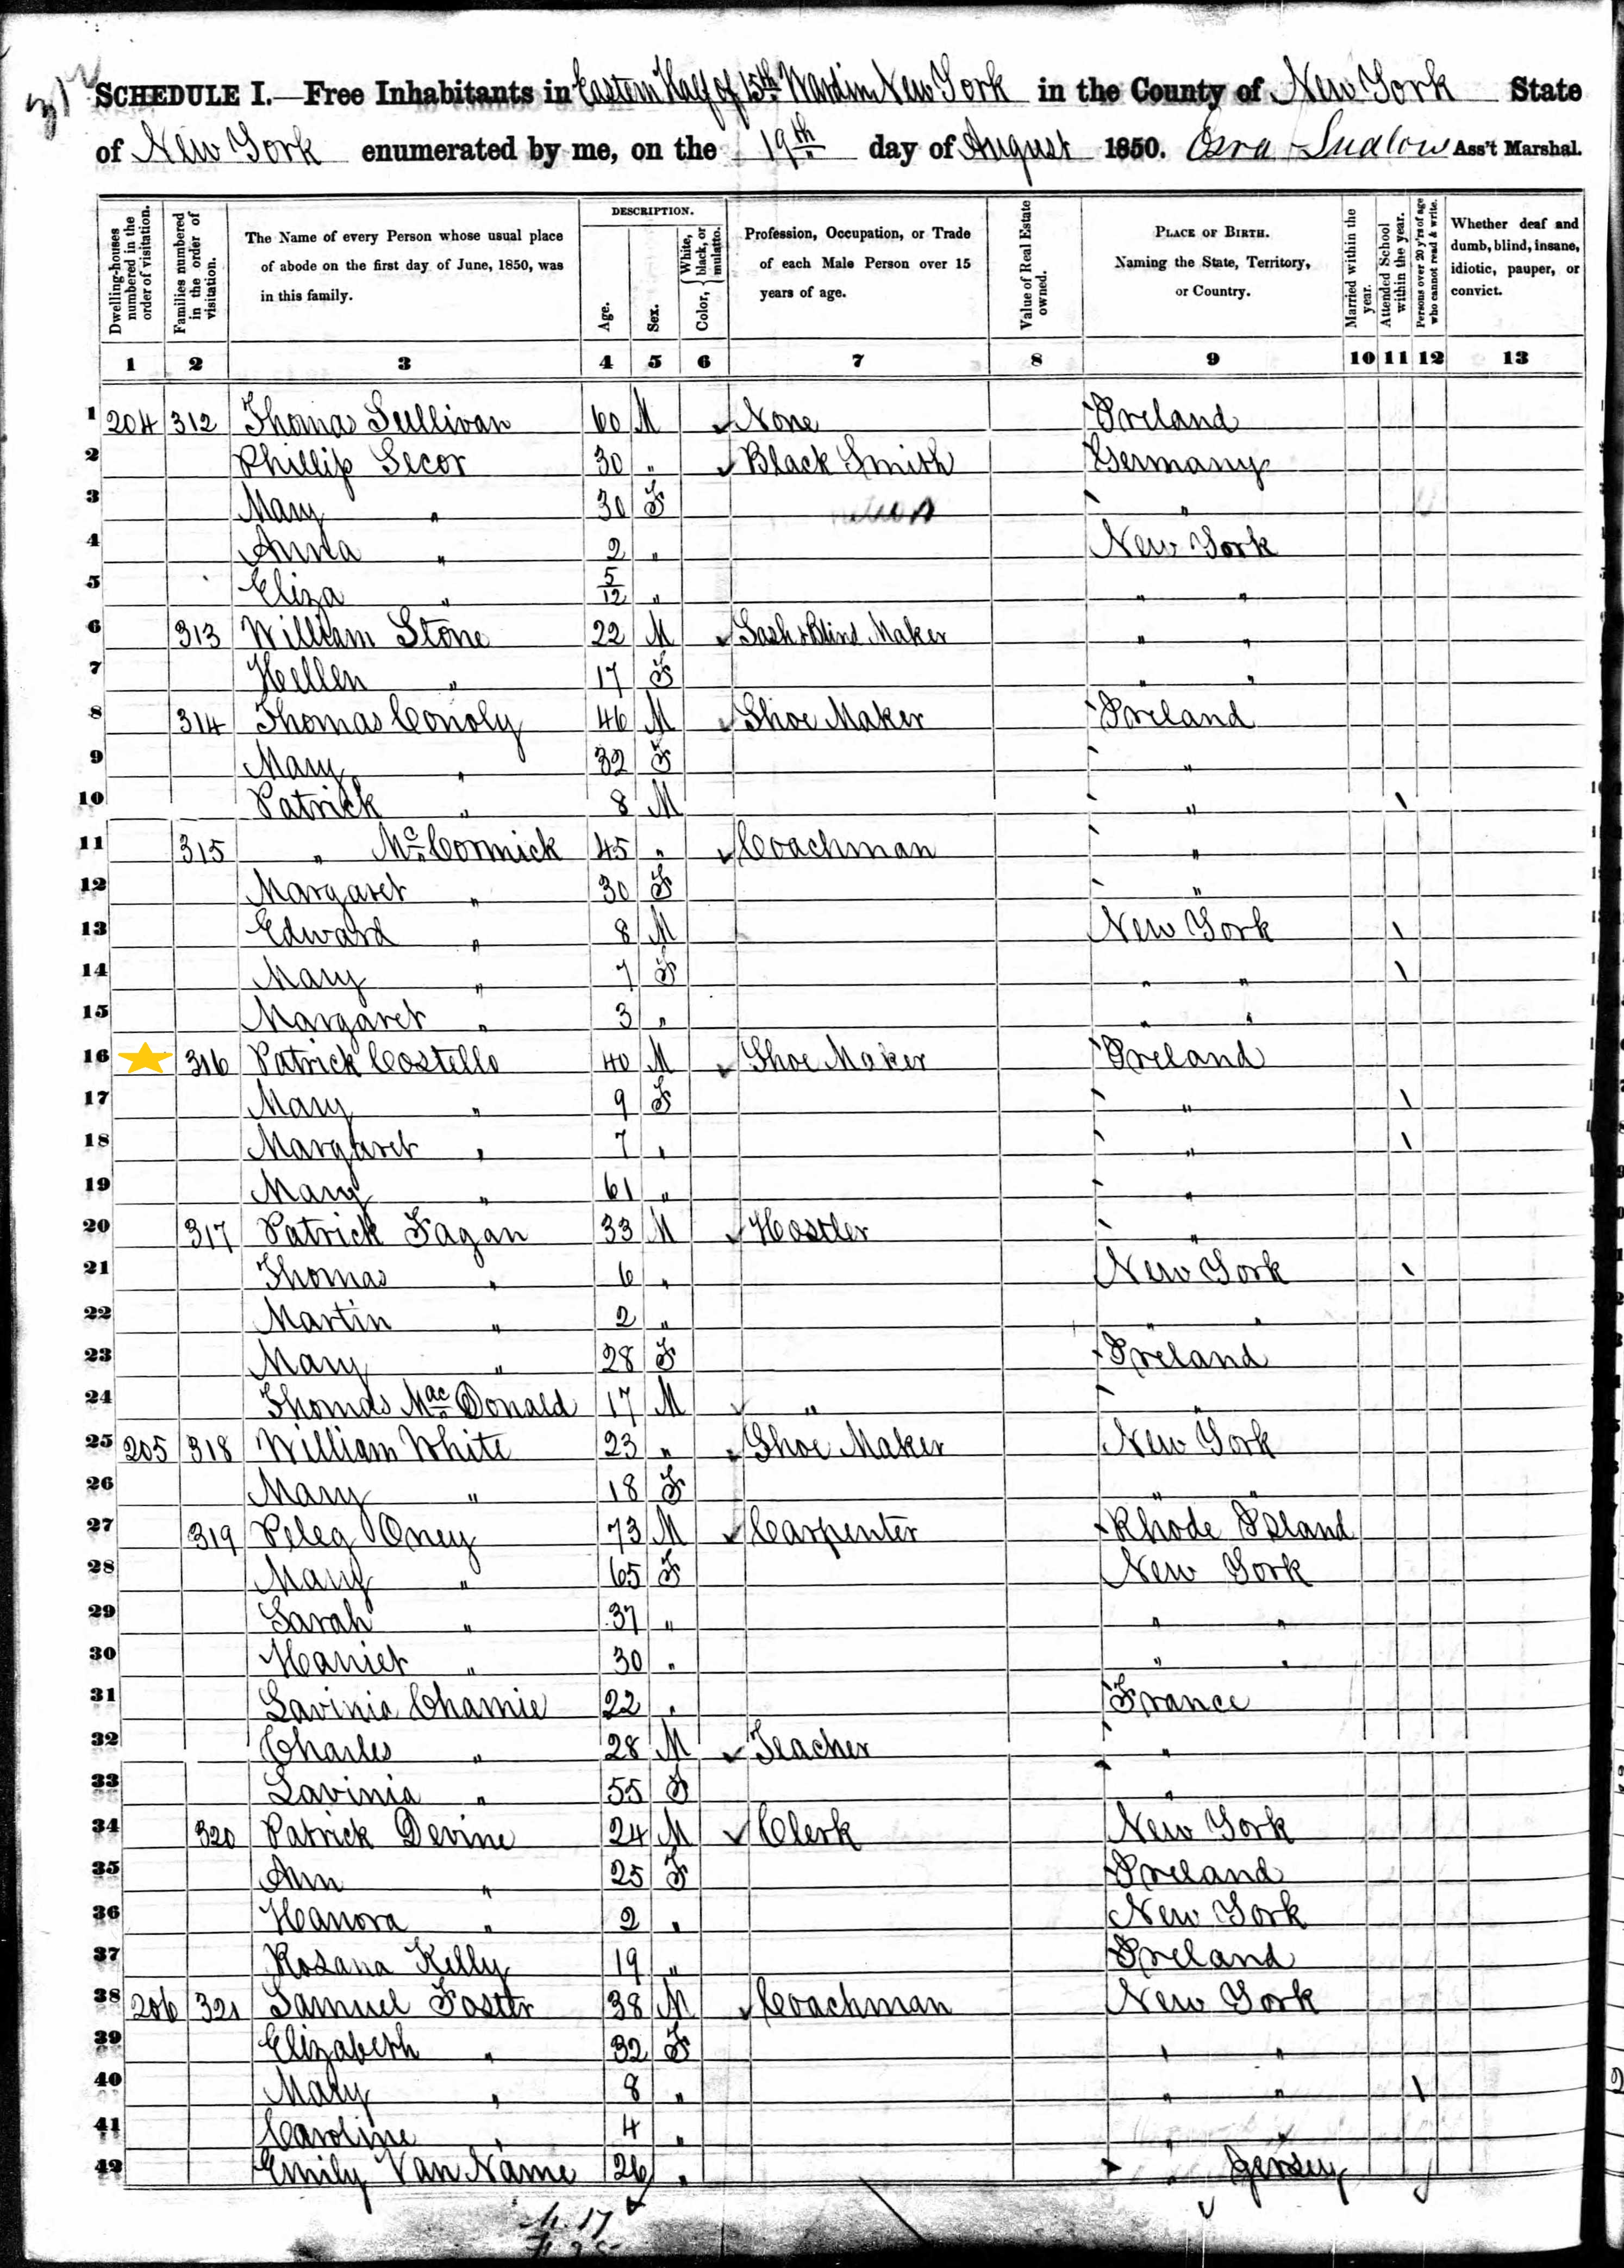 SCHEDULE I.—Free Inhabitants in Eastern Half of 15th Ward in New York in the County of New York State
of New York enumerated by me, on the 19th day of August 1850. Ezra Ludlow Ass't Marshal.
Dwelling-houses numbered in the order of visitation.
Families numbered in the order of visitation.
The Name of every Person whose usual place of abode on the first day of June, 1850, was in this family.
DESCRIPTION.
Age.
Sex.
Color, { White, black, or mulatto.
Profession, Occupation, or Trade of each Male Person over 15 years of age.
Value of Real Estate owned.
PLACE OF BIRTH. Naming the State, Territory, or Country.
Married within the year.
Attended School within the year.
Persons over 20 y'rs of age who cannot read & write.
Whether deaf and dumb, blind, insane, idiotic, pauper, or convict.
1 2 3 4 5 6 7 8 9 10 11 12 13
1 204 312 Thomas Sullivan 60 M None Ireland
2 Phillip Secor 30 " Black Smith Germany
3 Mary " 30 F "
4 Anna " 2 " New York
5 Eliza " 5/12 " " "
6 313 William Stone 22 M Sash & Blind Maker " "
7 Hellen " 17 F " "
8 314 Thomas Conoly 46 M Shoe Maker Ireland
9 Mary " 32 F "
10 Patrick " 8 M " \
11 315 " Mc Cormick 45 " Coachman "
12 Margaret " 30 F "
13 Edward " 8 M New York \
14 Mary " 7 F " " \
15 Margaret " 3 " " "
16 316 Patrick Costello 40 M Shoe Maker Ireland
17 Mary " 9 F " \
18 Margaret " 7 " " \
19 Mary " 61 " "
20 317 Patrick Fagan 33 M Hostler "
21 Thomas " 6 " New York \
22 Martin " 2 " " "
23 Mary " 28 F Ireland
24 Thomas Mac Donald 17 M " "
25 205 318 William White 23 " Shoe Maker New York
26 Mary " 18 F " "
27 319 Peleg Oney 73 M Carpenter Rhode Island
28 Mary " 65 F New York
29 Sarah " 37 " " "
30 Harriet " 30 " " "
31 Lavinia Chamie 22 " France
32 Charles " 28 M Teacher "
33 Lavinia " 55 F "
34 320 Patrick Devine 24 M Clerk New York
35 Ann " 25 F Ireland
36 Hanora " 2 " New York
37 Rosana Kelly 19 " Ireland
38 206 321 Samuel Foster 38 M Coachman New York
39 Elizabeth " 32 F " "
40 Mary " 8 " " " \
41 Caroline " 4 " " "
42 Emily Van Name 26 " " Jersey
M. 17